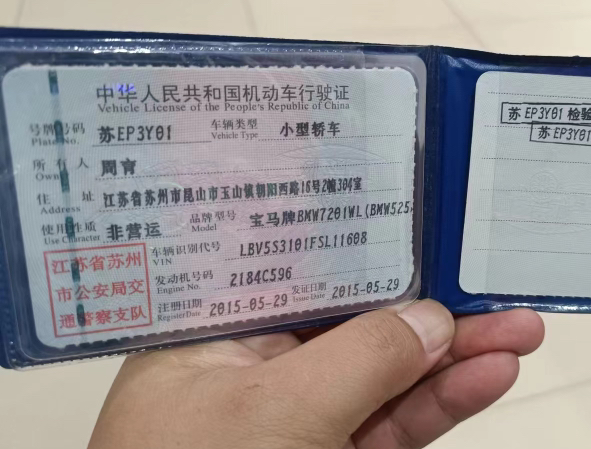 中华人民共和国机动车行驶证
Vehicle License of the People's Republic of China
号牌号码 Plate No. 苏EP3Y01 车辆类型 Vehicle Type 小型轿车
所有人 Owner 周育
住址 Address 江苏省苏州市昆山市玉山镇朝阳西路16号2幢304室
使用性质 Use Character 非营运 品牌型号 Model 宝马牌BMW7201WL(BMW525
车辆识别代号 VIN LBV5S3101FSL11608
发动机号码 Engine No. 2184C596
注册日期 Register Date 2015-05-29 发证日期 Issue Date 2015-05-29
江苏省苏州
市公安局交
通警察支队
苏EP3Y01 检验
苏EP3Y01